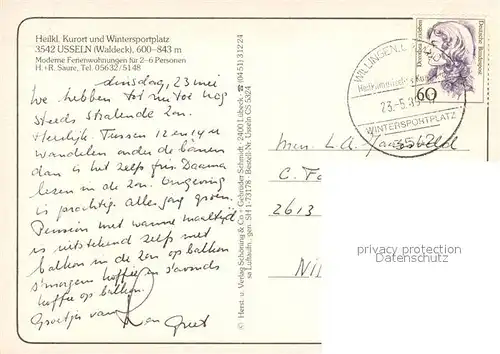 Heilkl. Kurort und Wintersportplatz
3542 USSELN (Waldeck), 600–843 m
Moderne Ferienwohnungen für 2–6 Personen
H. + R. Saure, Tel. 05632/5148
dinsdag, 23 mei
We hebben tot nu toe nog
steeds stralende zon.
Heerlijk. Tussen 12 en 14 u
wandelen onder de bomen
dan is het zelfs fris. Daarna
lezen in de zon. Omgeving
is prachtig. Alles jong groen.
Pension met warme maaltijd
is uitstekend zelfs met
balkon in de zon op balkon
s'morgens koffie en s'avonds
koffie op balkon.
Groetjes van
© Herst. u. Verlag Schöning & Co + Gebrüder Schmidt, 2400 Lübeck, ☎ (0451) 31224
sa Luftaufn., gen. SH 1-73178 · Bestell-Nr. Usseln CS 5324
Deutsche Bundespost
60
WILLINGEN,
Heilklimatischer Kurort
23.-5.89
WINTERSPORTPLATZ
Mevr. L. A.
C.
2613
privacy protection
Datenschutz